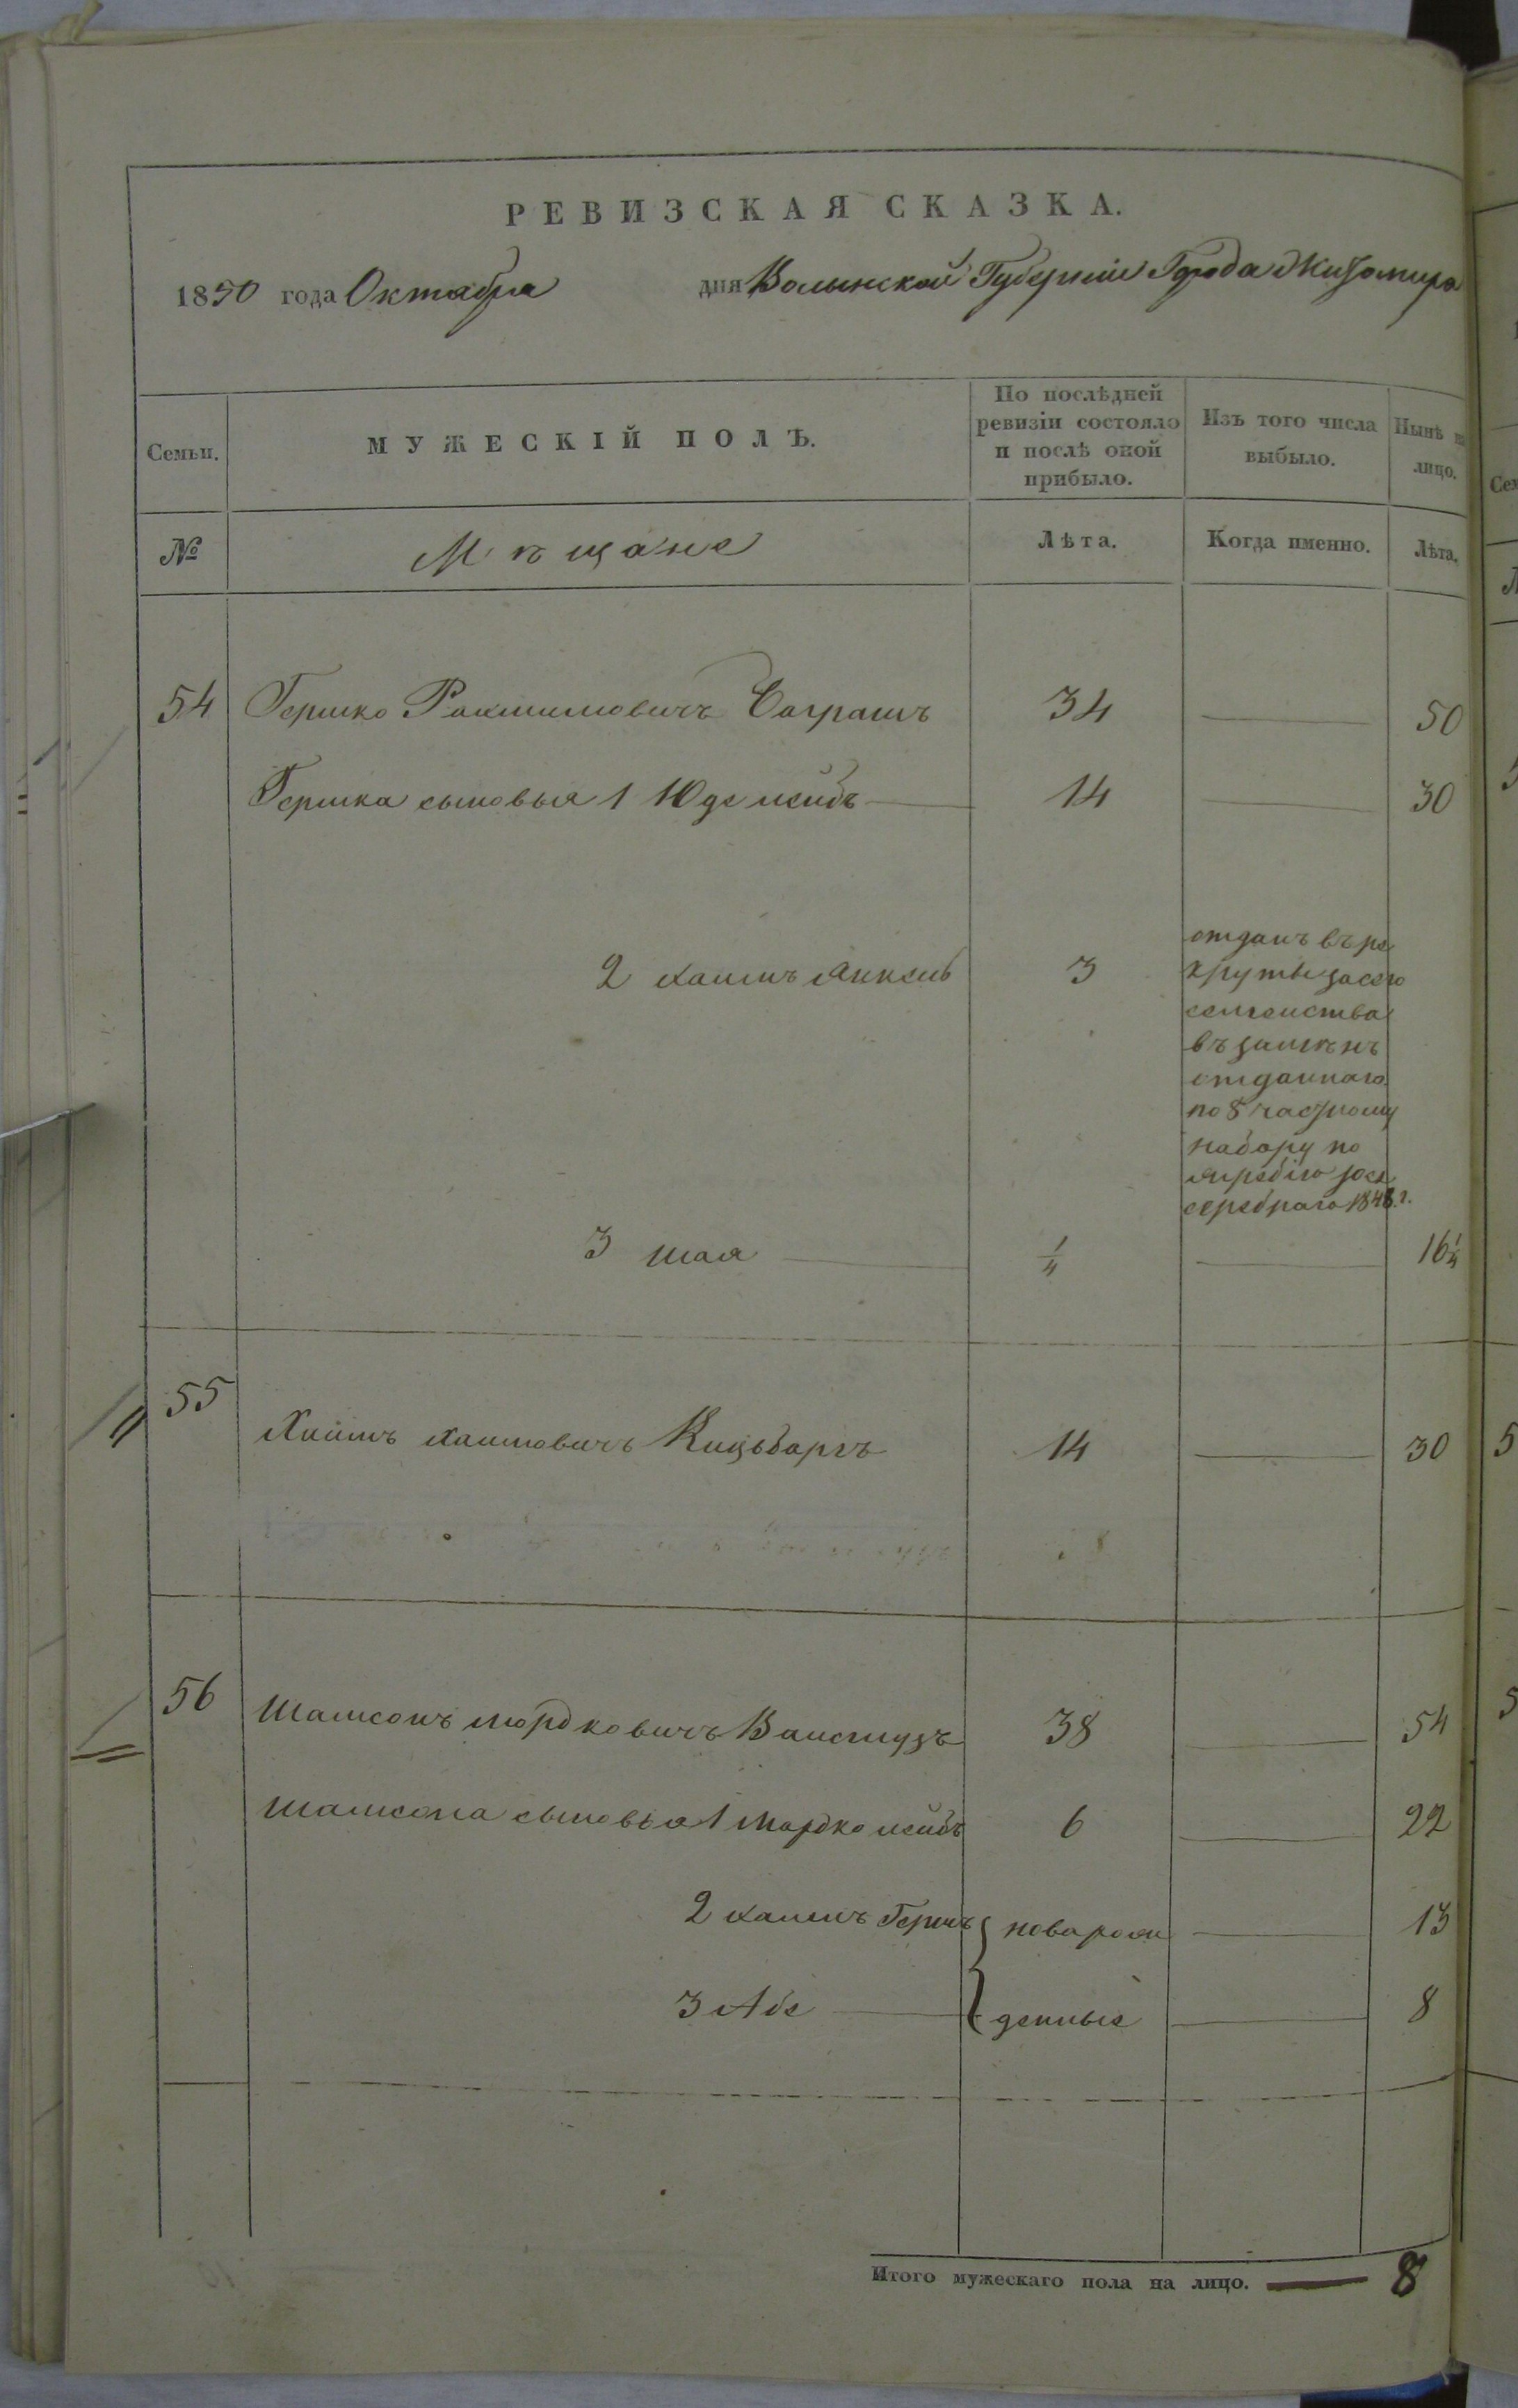 РЕВИЗСКАЯ СКАЗКА.
1850 года Октября дня Волынской Губернии Города Житомира
Семьи. МУЖЕСКІЙ ПОЛЪ. По послѣдней ревизіи состояло и послѣ оной прибыло. Изъ того числа выбыло. Нынѣ на лицо.
№ Мѣщане Лѣта. Когда именно. Лѣта.
54 Гершко Баграшъ 34 — 50
Гершка сыновья 1 Юде лейбъ — 14 — 30
2 хаимъ Янкель 3
отданъ въ ре
круты за сего
семейства
въ замѣнъ
отданнаго
по 8 частному
набору по
жребію
1848. г.
3 шая — 1/4 — 16 1/4
55 Хаимъ хаимовичъ 14 — 30
56 Шамсонъ мордковичъ 38 — 54
шамсона сыновья 1 мордко лейбъ 6 — 22
2 хаимъ Гершъ } новарож — 13
3 Абе — } денные — 8
Итого мужескаго пола на лицо. — 8